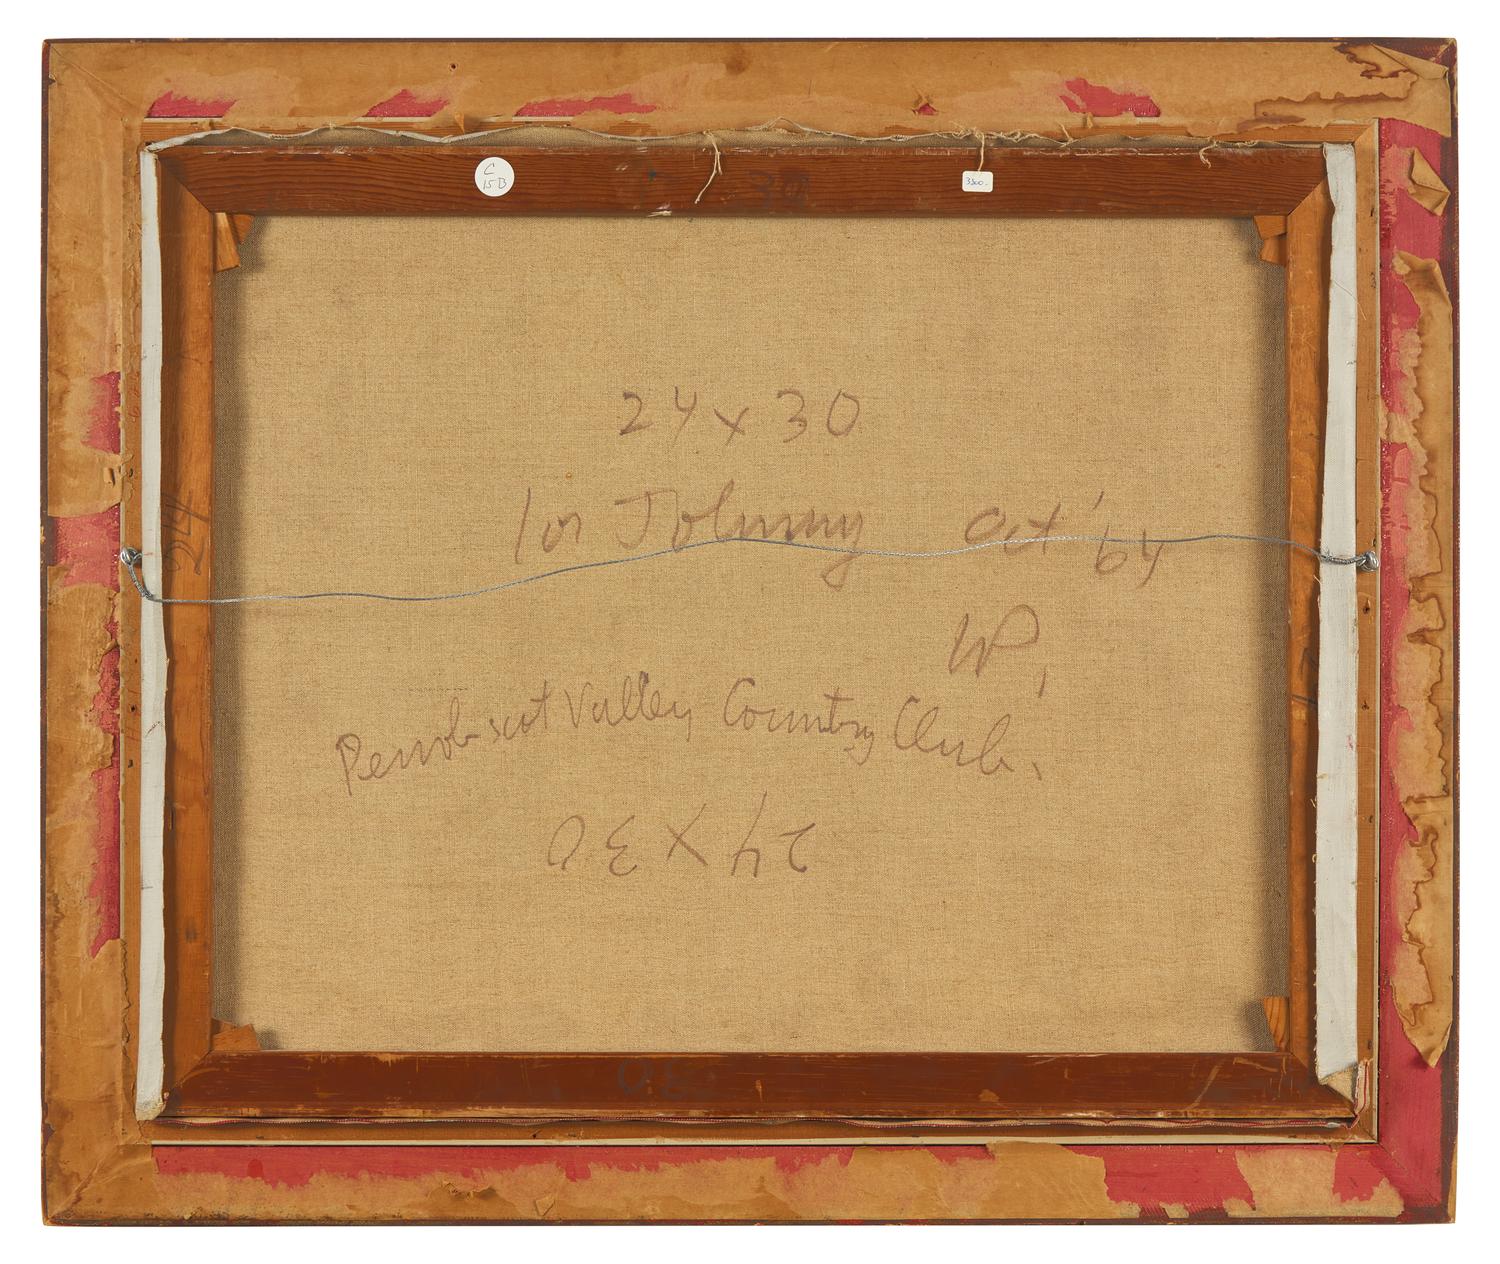 C
15B
3300.
30
24 x 30
for Johnny Oct '64
WP,
Penobscot Valley Country Club.
24 X 30
30